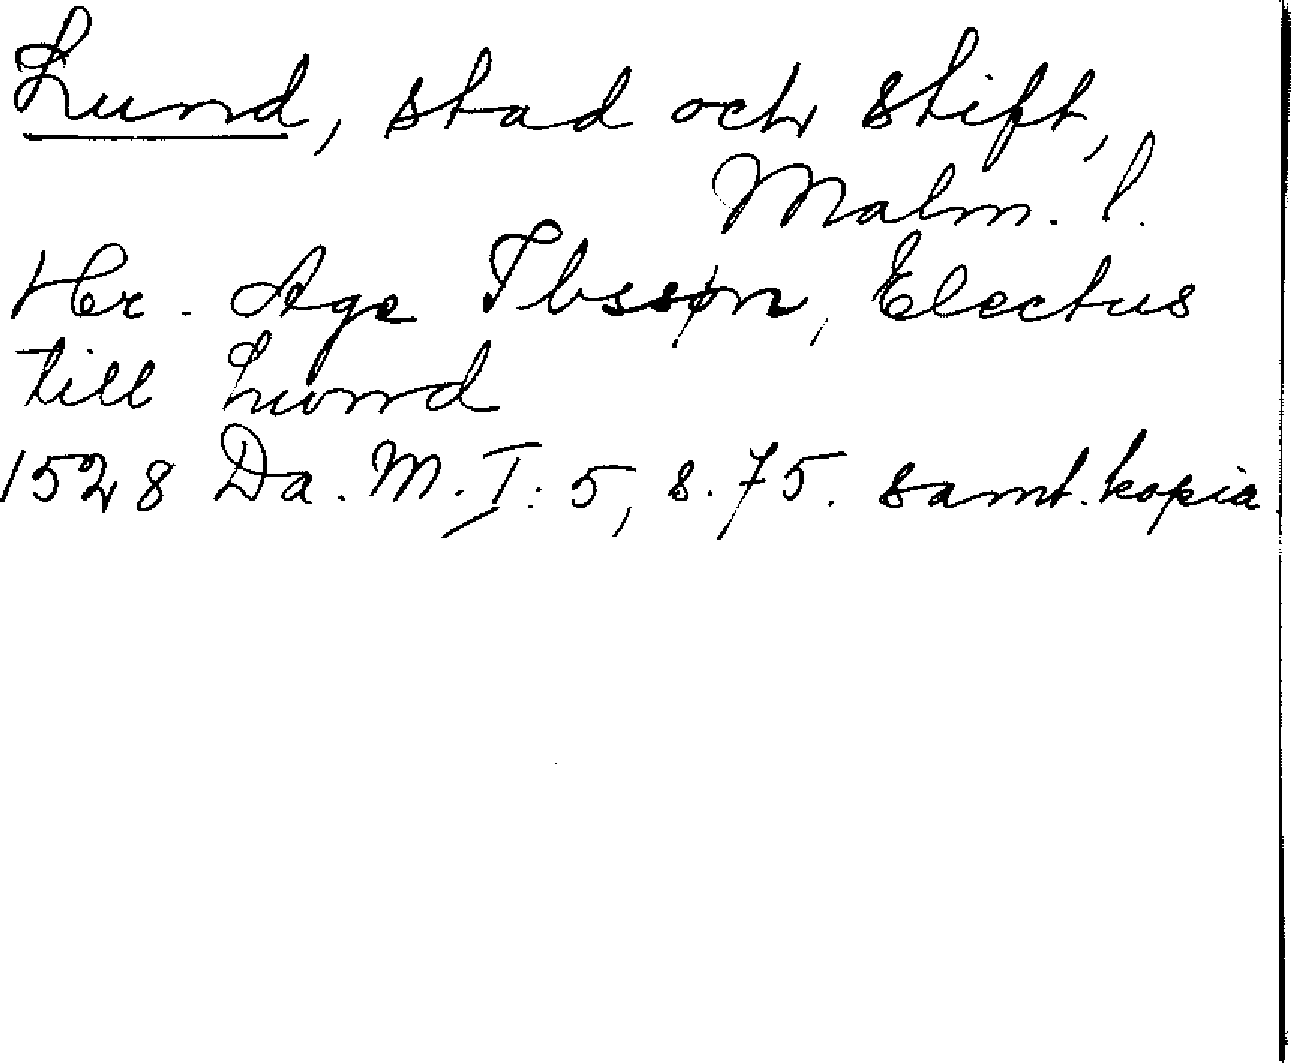 Lund, stad och stift,
Malm. l.
Hr. Age Ibssøn, Electus
till Lund
1528 Da. M. I: 5, s. 75. samt. kopia.